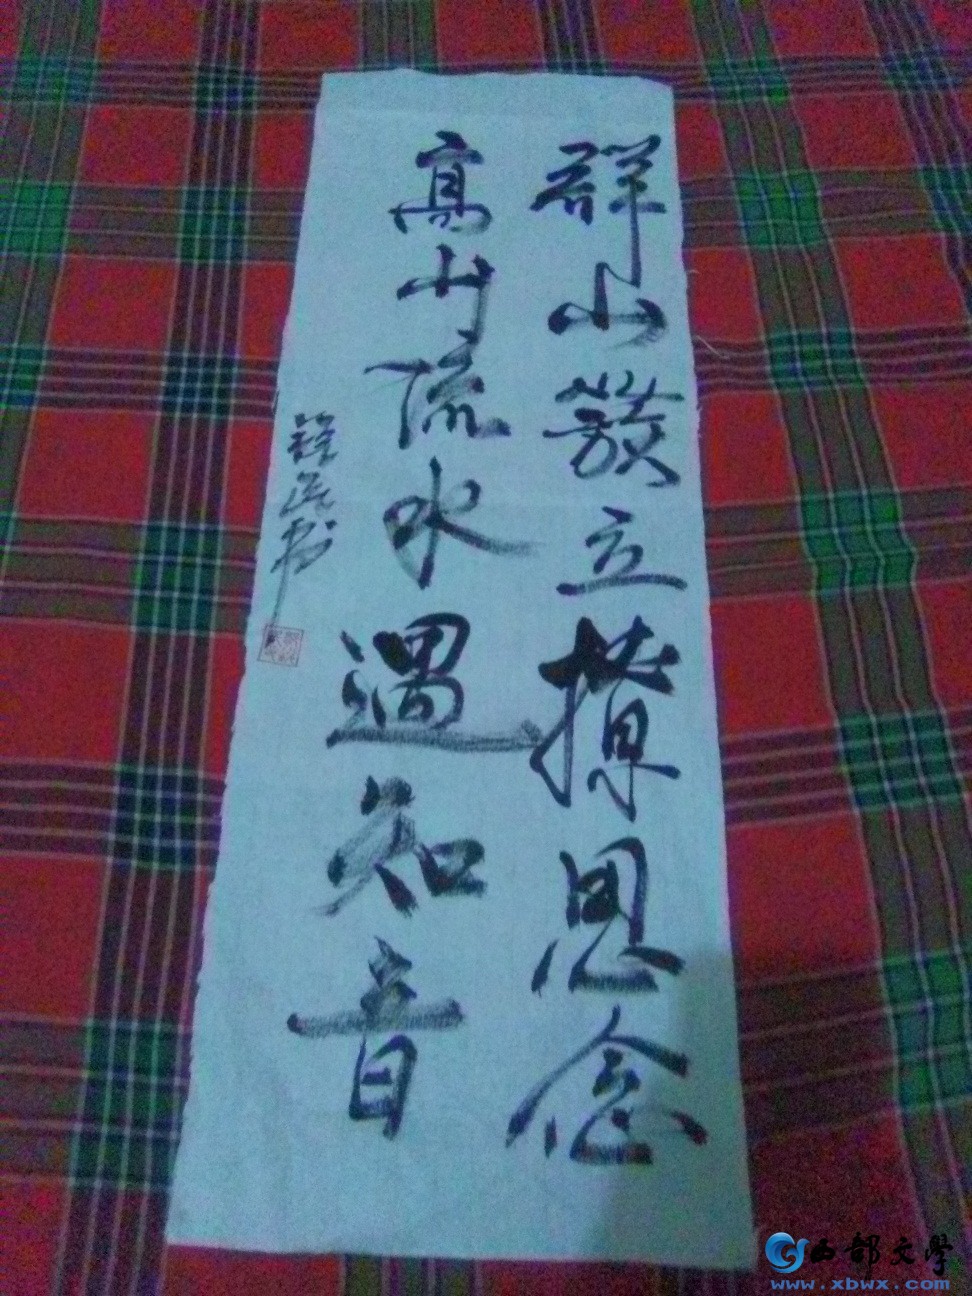 群山发立撩思念
高山流水遇知音
西部文學
www.xbwx.com